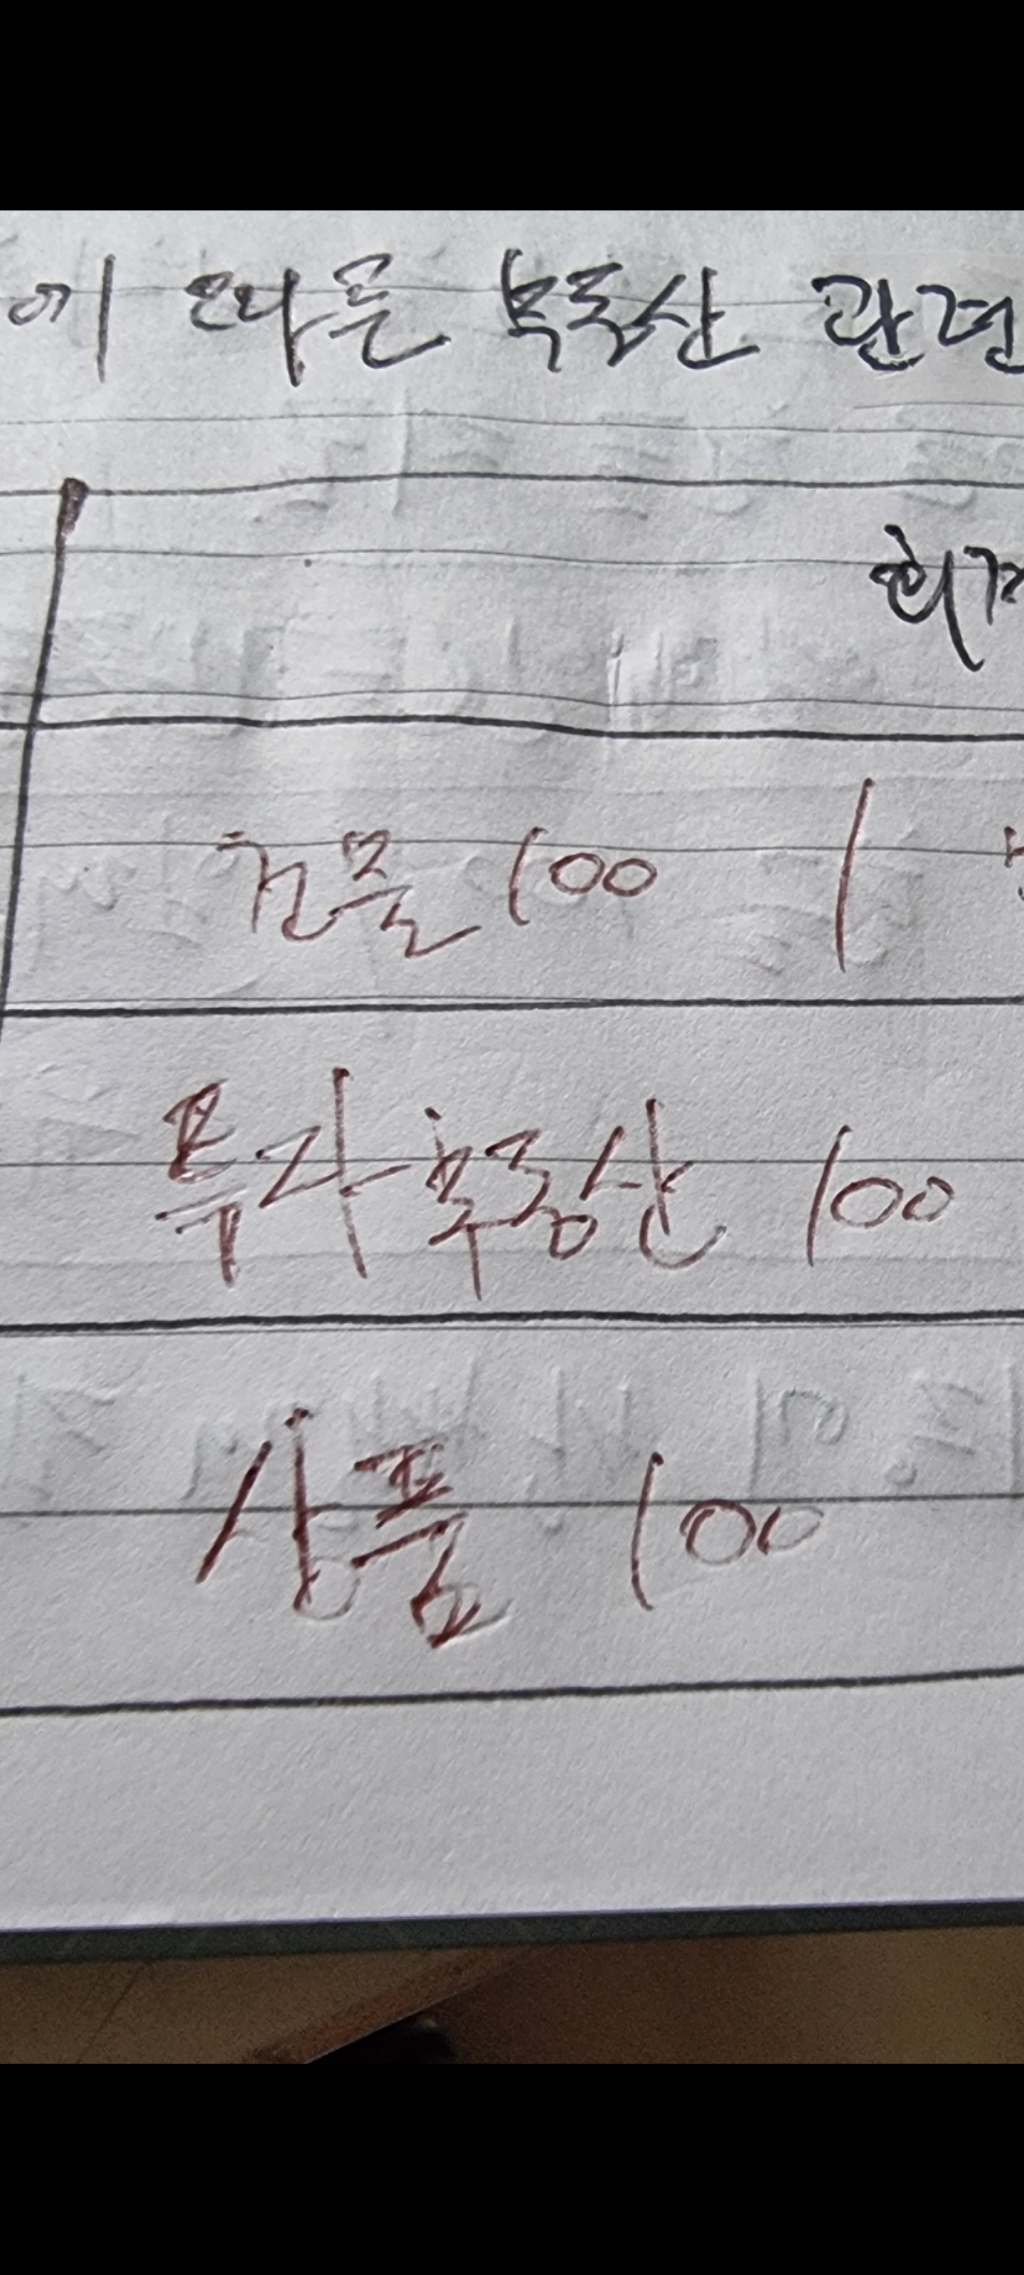 에 따른 부동산 관련
회계
건물 100
투자부동산 100
상품 100